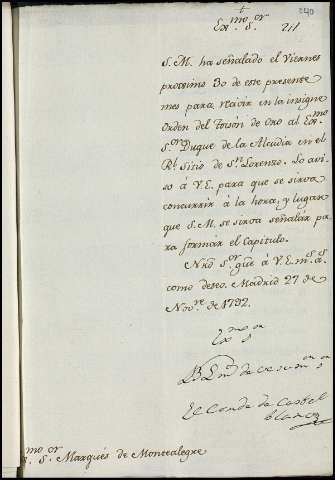 240
Ex.mo S.or
S. M. ha señalado el Viernes
proximo 30 de este presente
mes para recivir en la insigne
Orden del Toison de Oro al Ex.mo
S.or Duque de la Alcudia en el
R.l Sitio de S.n Lorenzo. Lo avi-
so á V.E. para que se sirva
concurrir á la hora, y lugar
que S. M. se sirva señalár pa
ra formar el Capitulo.
Nrõ S.or gũe á V.E. m.s a.s
como deseo. Madrid 27 de
Nov.re de 1792.
Ex.mo S.or
B.L.M. de V.E. su m.or
El Conde de Castel
blanco
Ex.mo S.or Marqués de Montealegre